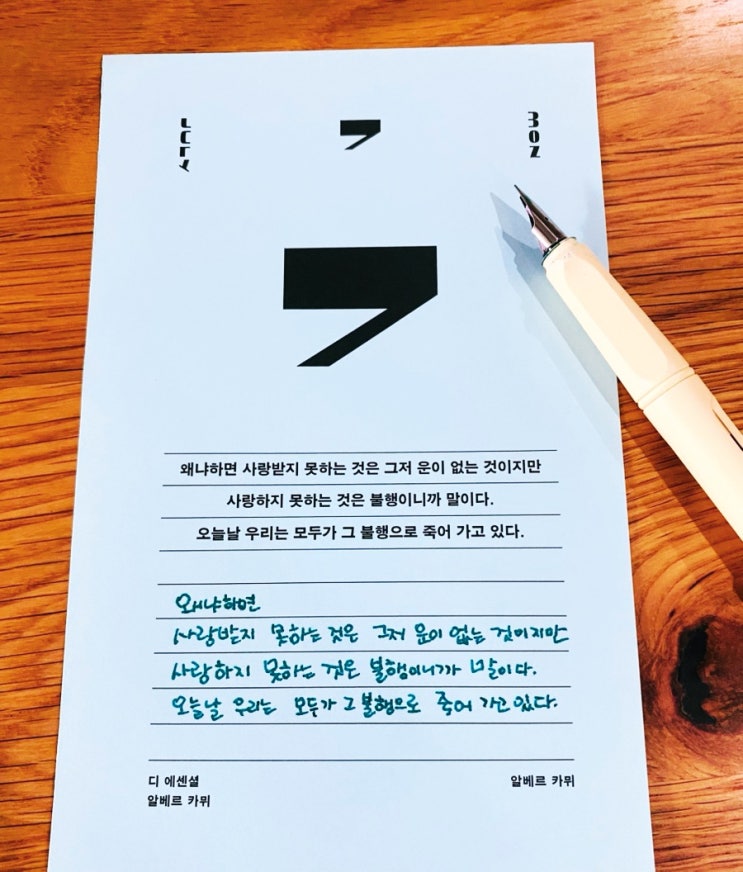 JULY
7
MON
7
왜냐하면 사랑받지 못하는 것은 그저 운이 없는 것이지만
사랑하지 못하는 것은 불행이니까 말이다.
오늘날 우리는 모두가 그 불행으로 죽어 가고 있다.
왜냐하면
사랑받지 못하는 것은 그저 운이 없는 것이지만
사랑하지 못하는 것은 불행이니까 말이다.
오늘날 우리는 모두가 그 불행으로 죽어 가고 있다.
디 에센셜
알베르 카뮈
알베르 카뮈